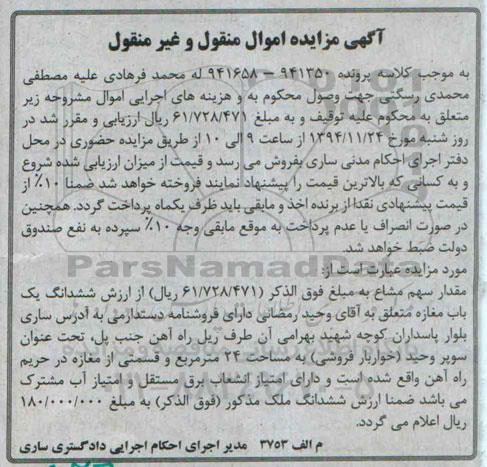 آگهی مزایده اموال منقول و غیر منقول
به موجب کلاسه پرونده ۹۴۱۳۵۰ – ۹۴۱۶۵۸ له محمد فرهادی علیه مصطفی
محمدی رسگتی جهت وصول محکوم به و هزینه های اجرایی اموال مشروحه زیر
متعلق به محکوم علیه توقیف و به مبلغ ۶۱/۷۲۸/۴۷۱ ریال ارزیابی و مقرر شد در
روز شنبه مورخ ۱۳۹۴/۱۱/۲۴ از ساعت ۹ الی ۱۰ از طریق مزایده حضوری در محل
دفتر اجرای احکام مدنی ساری بفروش می رسد و قیمت از میزان ارزیابی شده شروع
و به کسانی که بالاترین قیمت را پیشنهاد نمایند فروخته خواهد شد ضمنا ۱۰٪ از
قیمت پیشنهادی نقدا از برنده اخذ و مابقی باید ظرف یکماه پرداخت گردد. همچنین
در صورت انصراف یا عدم پرداخت به موقع مابقی وجه ۱۰٪ سپرده به نفع صندوق
دولت ضبط خواهد شد.
مورد مزایده عبارت است از:
مقدار سهم مشاع به مبلغ فوق الذکر (۶۱/۷۲۸/۴۷۱ ریال) از ارزش ششدانگ یک
باب مغازه متعلق به آقای وحید رمضانی دارای فروشنامه دستدارمی به آدرس ساری
بلوار پاسداران کوچه شهند بهرامی آن طرف ریل راه آهن جنب پل، تحت عنوان
سوپر وحید (خواربار فروشی) به مساحت ۲۴ مترمربع و قسمتی از مغازه در حریم
راه آهن واقع شده است و دارای امتیاز انشعاب برق مستقل و امتیاز آب مشترک
می باشد ضمنا ارزش ششدانگ ملک مذکور (فوق الذکر) به مبلغ ۱۸۰/۰۰۰/۰۰۰
ریال اعلام می گردد.
م الف ۳۷۵۳ مدیر اجرای احکام اجرایی دادگستری ساری
ParsNamadData